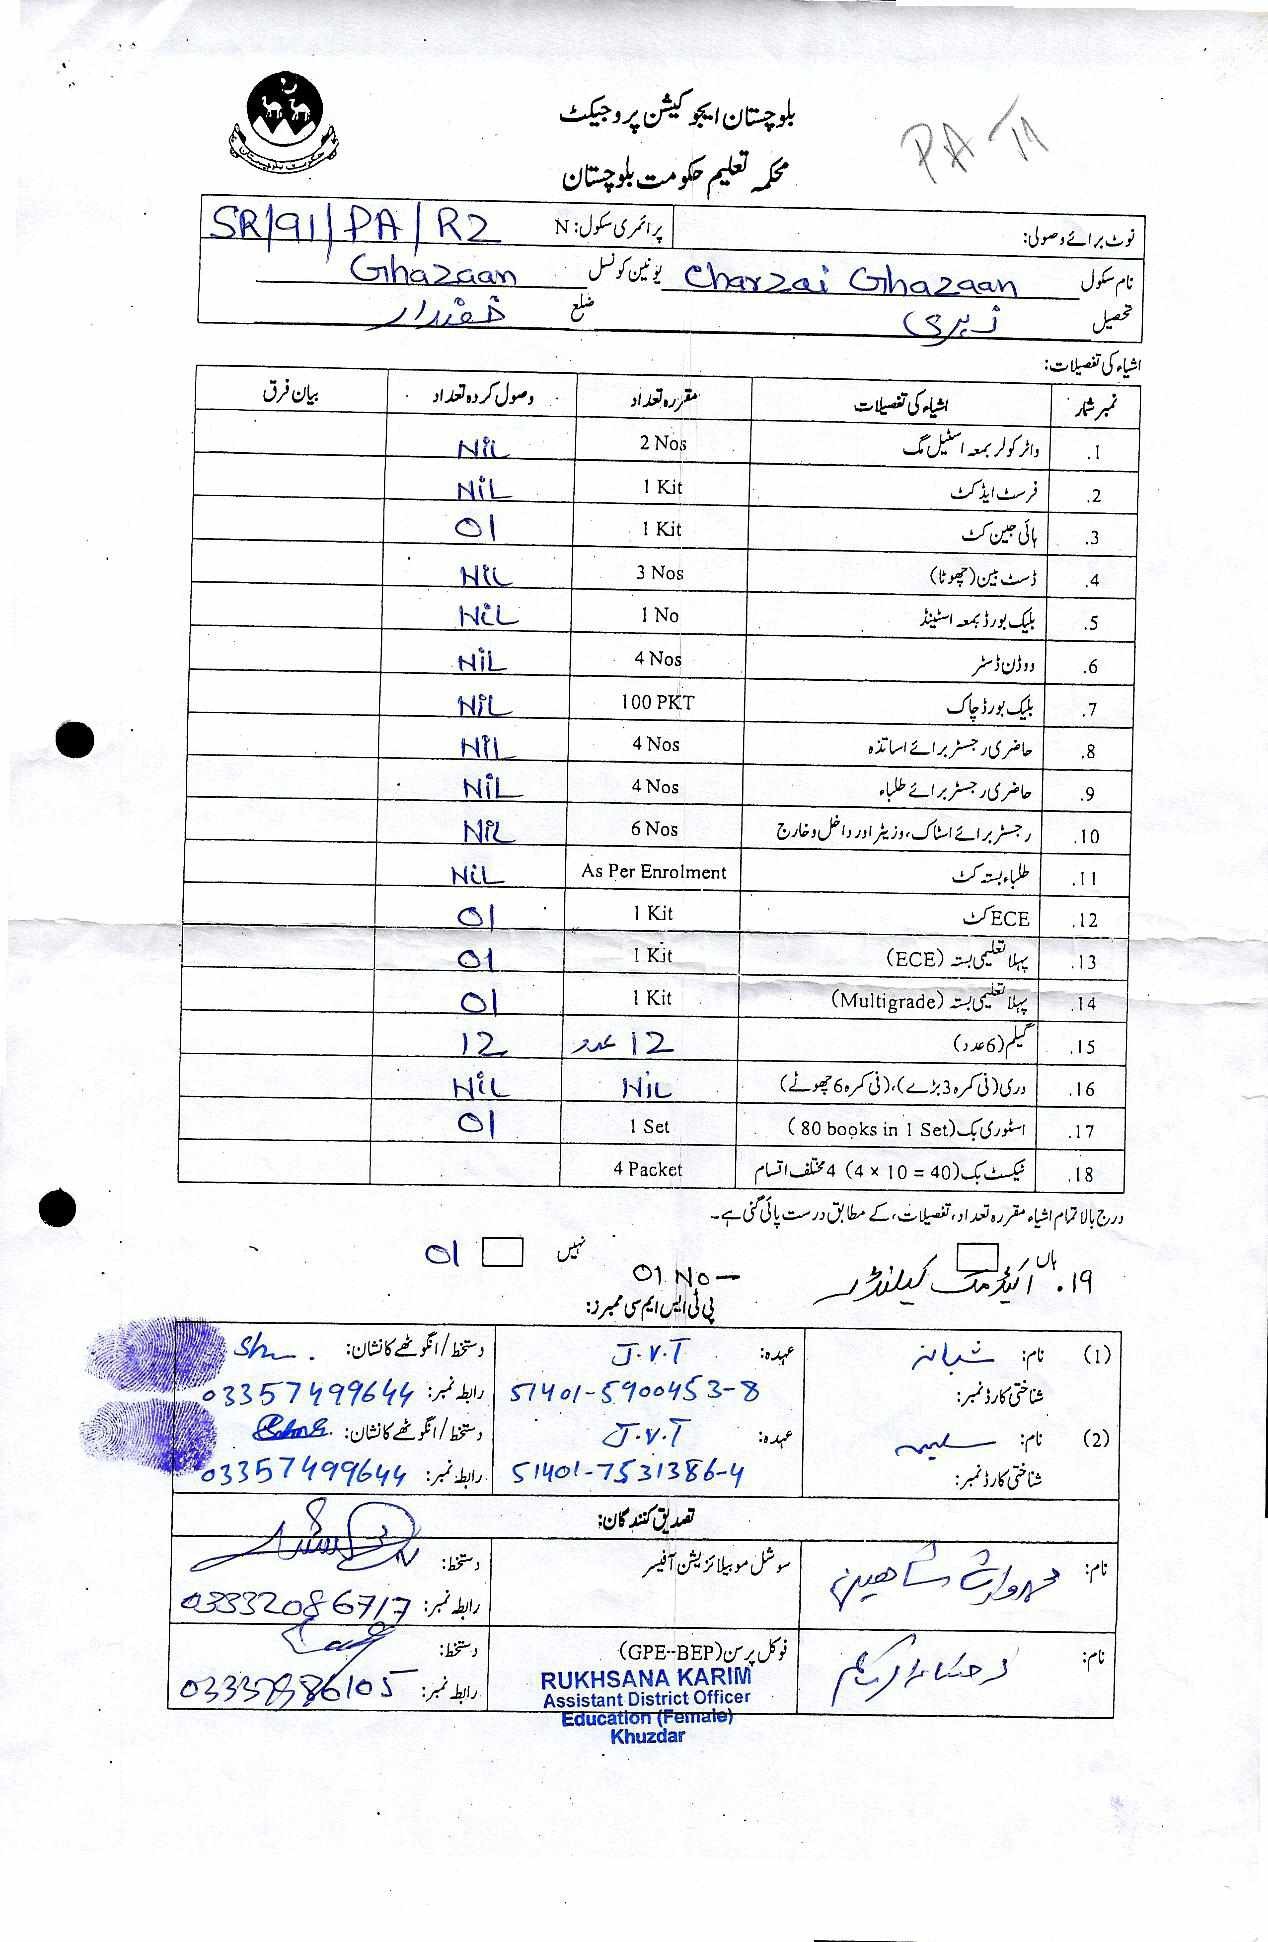 بلوچستان ایجوکیشن پروجیکٹ
محکمہ تعلیم حکومت بلوچستان
PA-19
نوٹ برائے وصولی: پرائمری سکول: N SR/91/PA/R2
نام سکول Charzai Ghazaan یونین کونسل Ghazaan
تحصیل زہری ضلع خضدار
اشیاء کی تفصیلات:
نمبر شمار اشیاء کی تفصیلات مقررہ تعداد وصول کردہ تعداد بیان فرق
1. واٹر کولر بمعہ اسٹیل مگ 2 Nos NiL
2. فرسٹ ایڈ کٹ 1 Kit NiL
3. ہائی جین کٹ 1 Kit 01
4. ڈسٹ بین (چھوٹا) 3 Nos NiL
5. بلیک بورڈ بمعہ اسٹینڈ 1 No NiL
6. ووڈن ڈسٹر 4 Nos NiL
7. بلیک بورڈ چاک 100 PKT NiL
8. حاضری رجسٹر برائے اساتذہ 4 Nos NiL
9. حاضری رجسٹر برائے طلباء 4 Nos NiL
10. رجسٹر برائے اسٹاک، وزیٹر اور داخل و خارج 6 Nos NiL
11. طلباء بستہ کٹ As Per Enrolment NiL
12. ECE کٹ 1 Kit 01
13. پہلا تعلیمی بستہ (ECE) 1 Kit 01
14. پہلا تعلیمی بستہ (Multigrade) 1 Kit 01
15. گیلم (6 عدد) 12 عدد 12
16. دری (فی کمرہ 3 بڑے)، (فی کمرہ 6 چھوٹے) NiL NiL
17. اسٹوری بک (80 books in 1 Set) 1 Set 01
18. ٹیکسٹ بک (4 × 10 = 40) 4 مختلف اقسام 4 Packet
درج بالا تمام اشیاء مقررہ تعداد، تفصیلات، کے مطابق درست پائی گئی ہے۔
ہاں نہیں 01
19. کیلنڈر 01 No
پی ٹی ایس ایم سی ممبرز:
(1) نام: شبانہ عہدہ: J.V.T دستخط/انگوٹھے کا نشان:
شناختی کارڈ نمبر: 51401-5900453-8 رابطہ نمبر: 03357499644
(2) نام: سلیمہ عہدہ: J.V.T دستخط/انگوٹھے کا نشان:
شناختی کارڈ نمبر: 51401-7531386-4 رابطہ نمبر: 03357499644
تصدیق کنندگان:
نام: شاہین سوشل موبلائزیشن آفیسر دستخط:
رابطہ نمبر: 03332086717
نام: رخسانہ کریم فوکل پرسن (GPE--BEP) دستخط:
رابطہ نمبر: 03337986105
RUKHSANA KARIM
Assistant District Officer
Education (Female)
Khuzdar